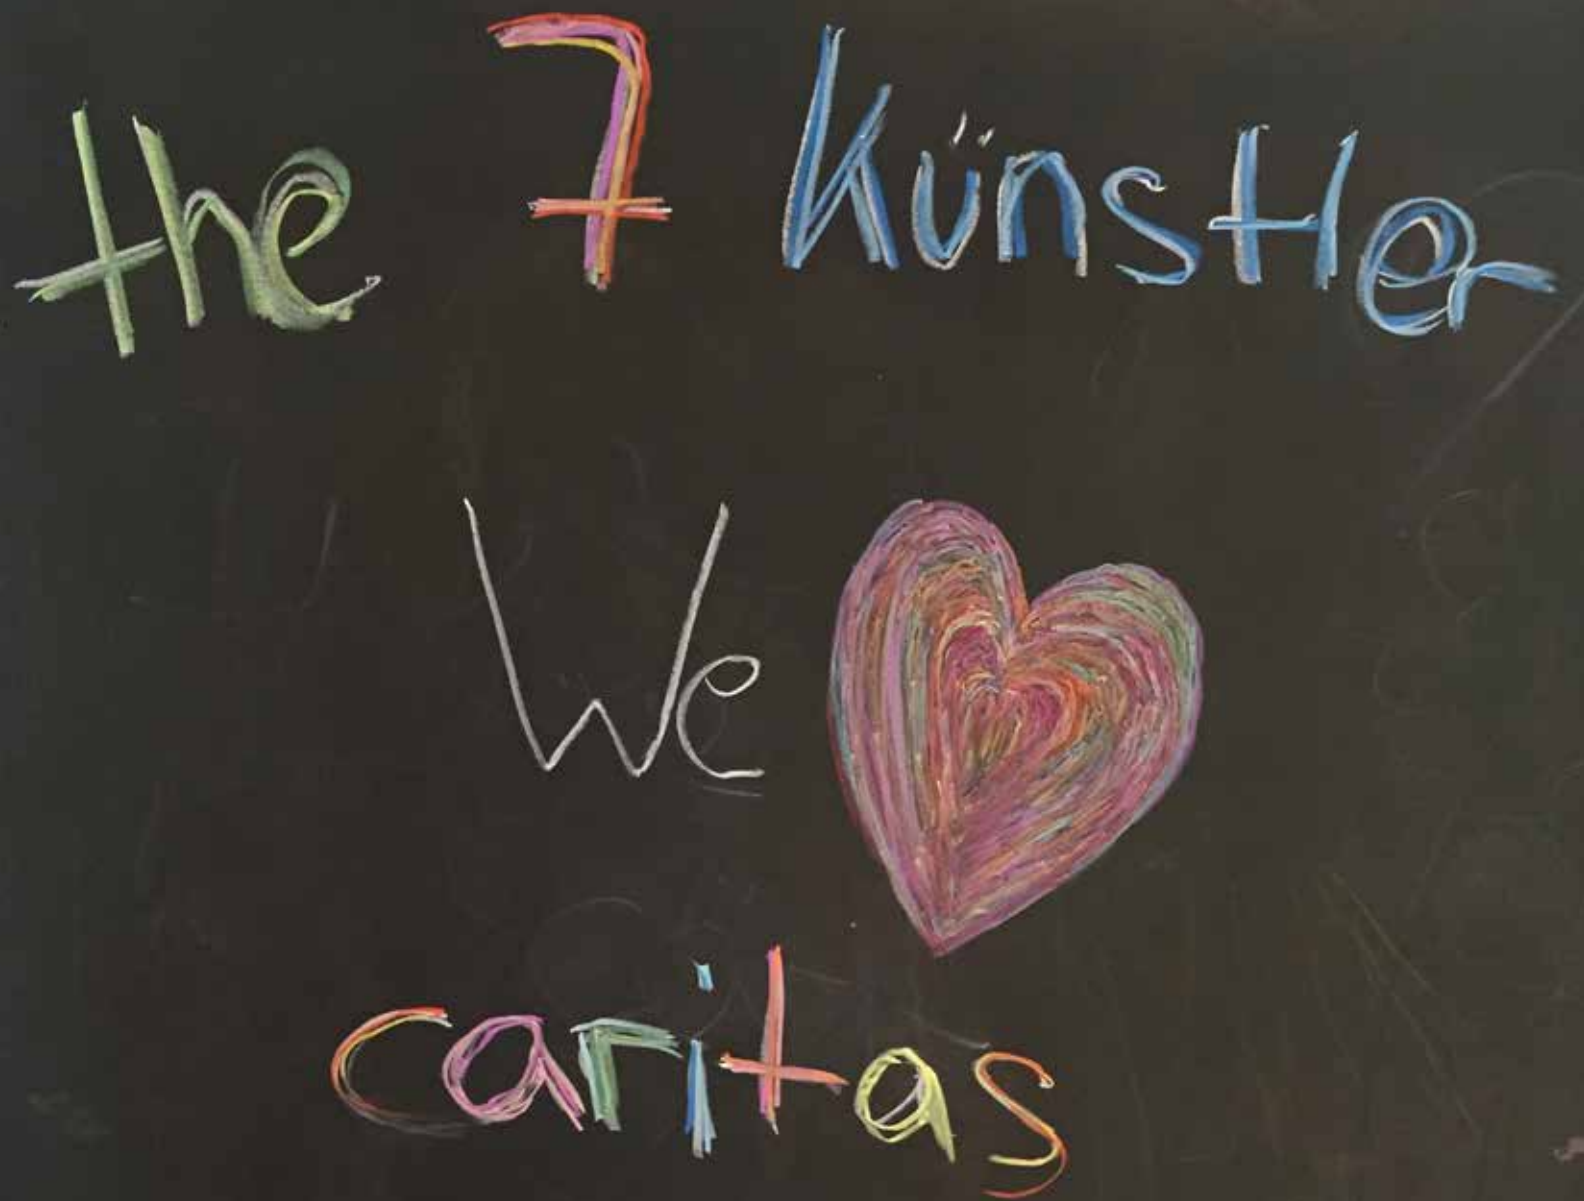 the 7 Künstler
We ❤
caritas